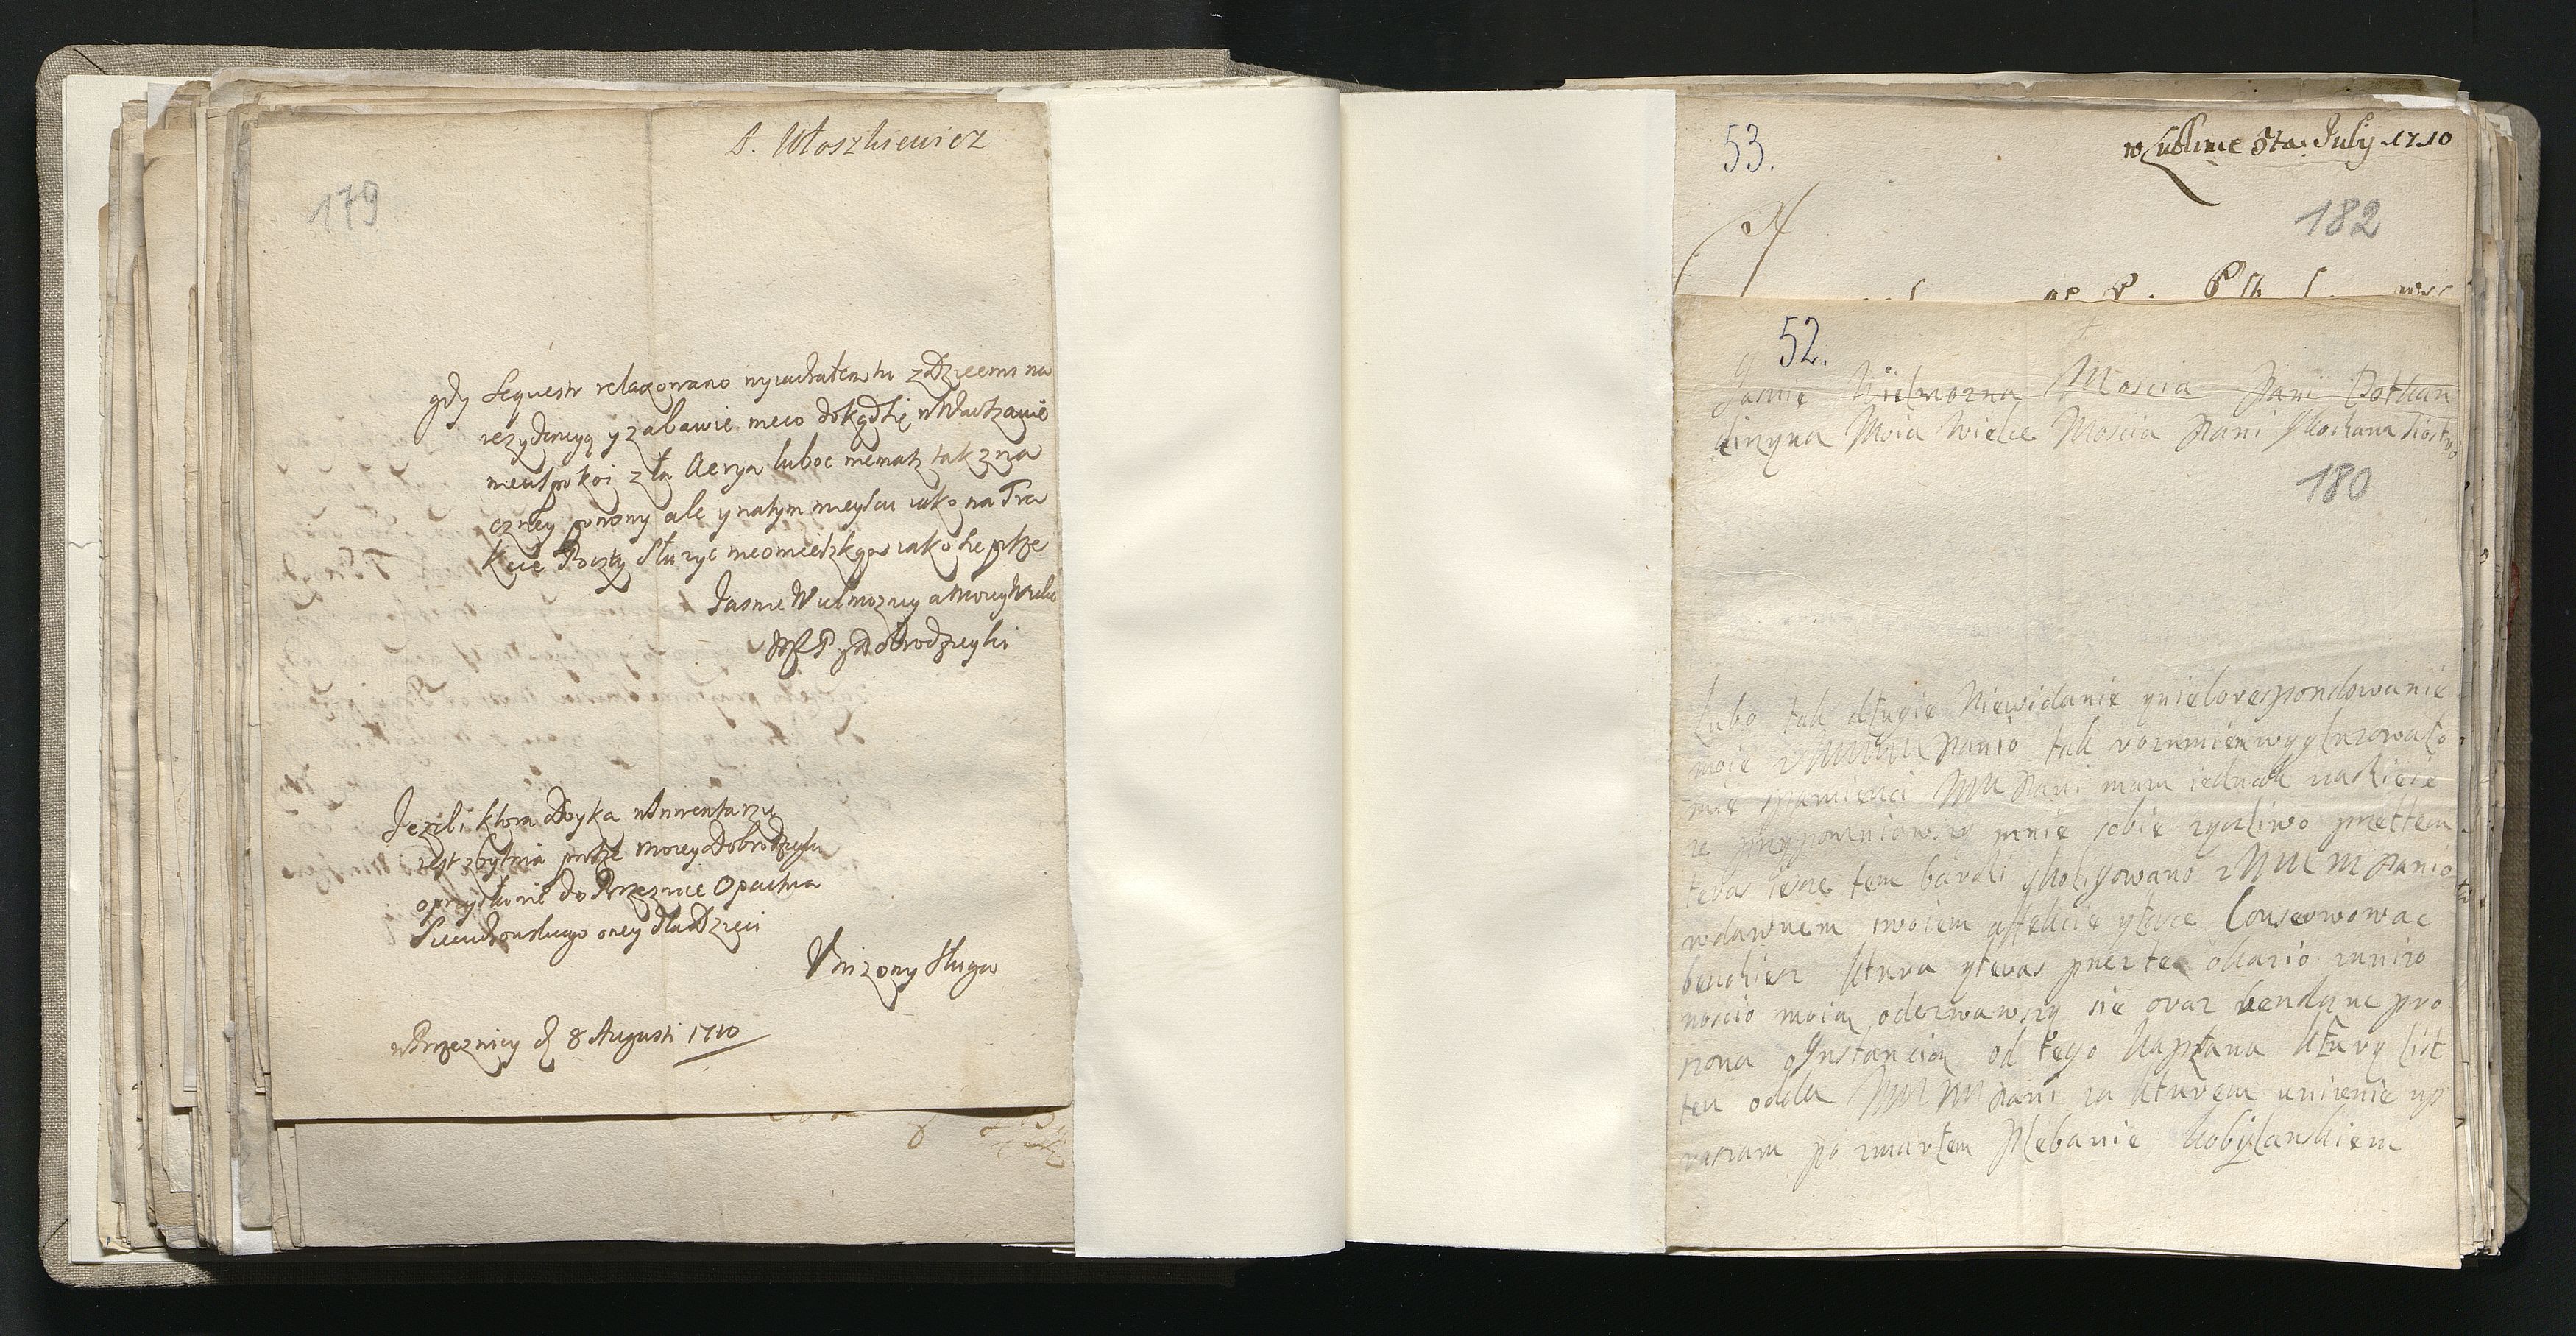 A. Włoszkiewicz
179
gdy Sequestr relaxowano wyiachałem tu z Dziecmi na
rezydencyą y zabawie nieco dokąd się w Warszawie
nieuspokoi zła Aerya luboc niemasz tak zna
czney ponowy ale y natym mieyscu iako na Tra
kcie Poczty służyc nieomieszkam iako się pisze
Jasnie Wielmozney a Morey Wielce
M P y Dobrodzieyki
Jezeli ktora Beyka w Inwentarzu
iest zbytnia prosze Moiey Dobrodzieyki
o przysłanie do Brzeznice Opactwa
Sieciechowskiego oney dla Dzieci
Unizony sługa
w Brzeznicy d 8 Augusti 1710
53.
w Lublinie 5ta July 1710
182
52.
Jasnie Wielmozna Moscia Pani Pothan
clirzyna Moia Wielce Moscia Pani y Kochana Siostro
180
Lubo tak długie Niewidanie y nie korespondowanie
moie z Panio tak rozumiem wygluzowało
mie spamienci MM Pani mam iednak nadzieie
ze przypomniawszy mnie sobie zyczliwo przettem
teras iesze tem bardzi skoligowano z MM M Panio
w dawnem swoiem affekcie y łasce Conserwowac
bendziesz ktura y teras przez te okazio z unizo
noscio moia oderwawszy sie oraz bendanc pro
szona o Instancia od tego kapłana ktury list
ten odda MM M Pani za kturem unizenie up
raszam po zmarłem Plebanie Kobylanskiem